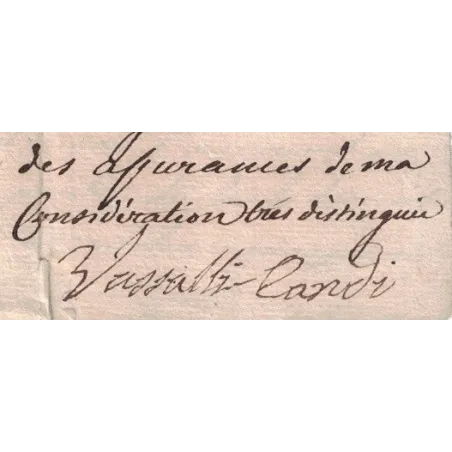 des assurances de ma
Considération très distinguée
Vassalli-Candi